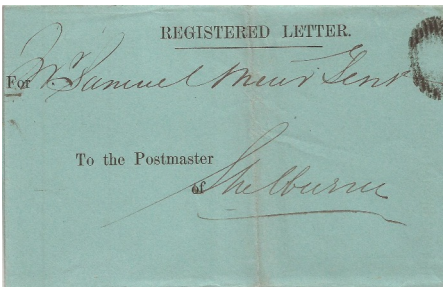 REGISTERED LETTER.
For Mr. Samuel Muir Gent
To the Postmaster
of Shelburne